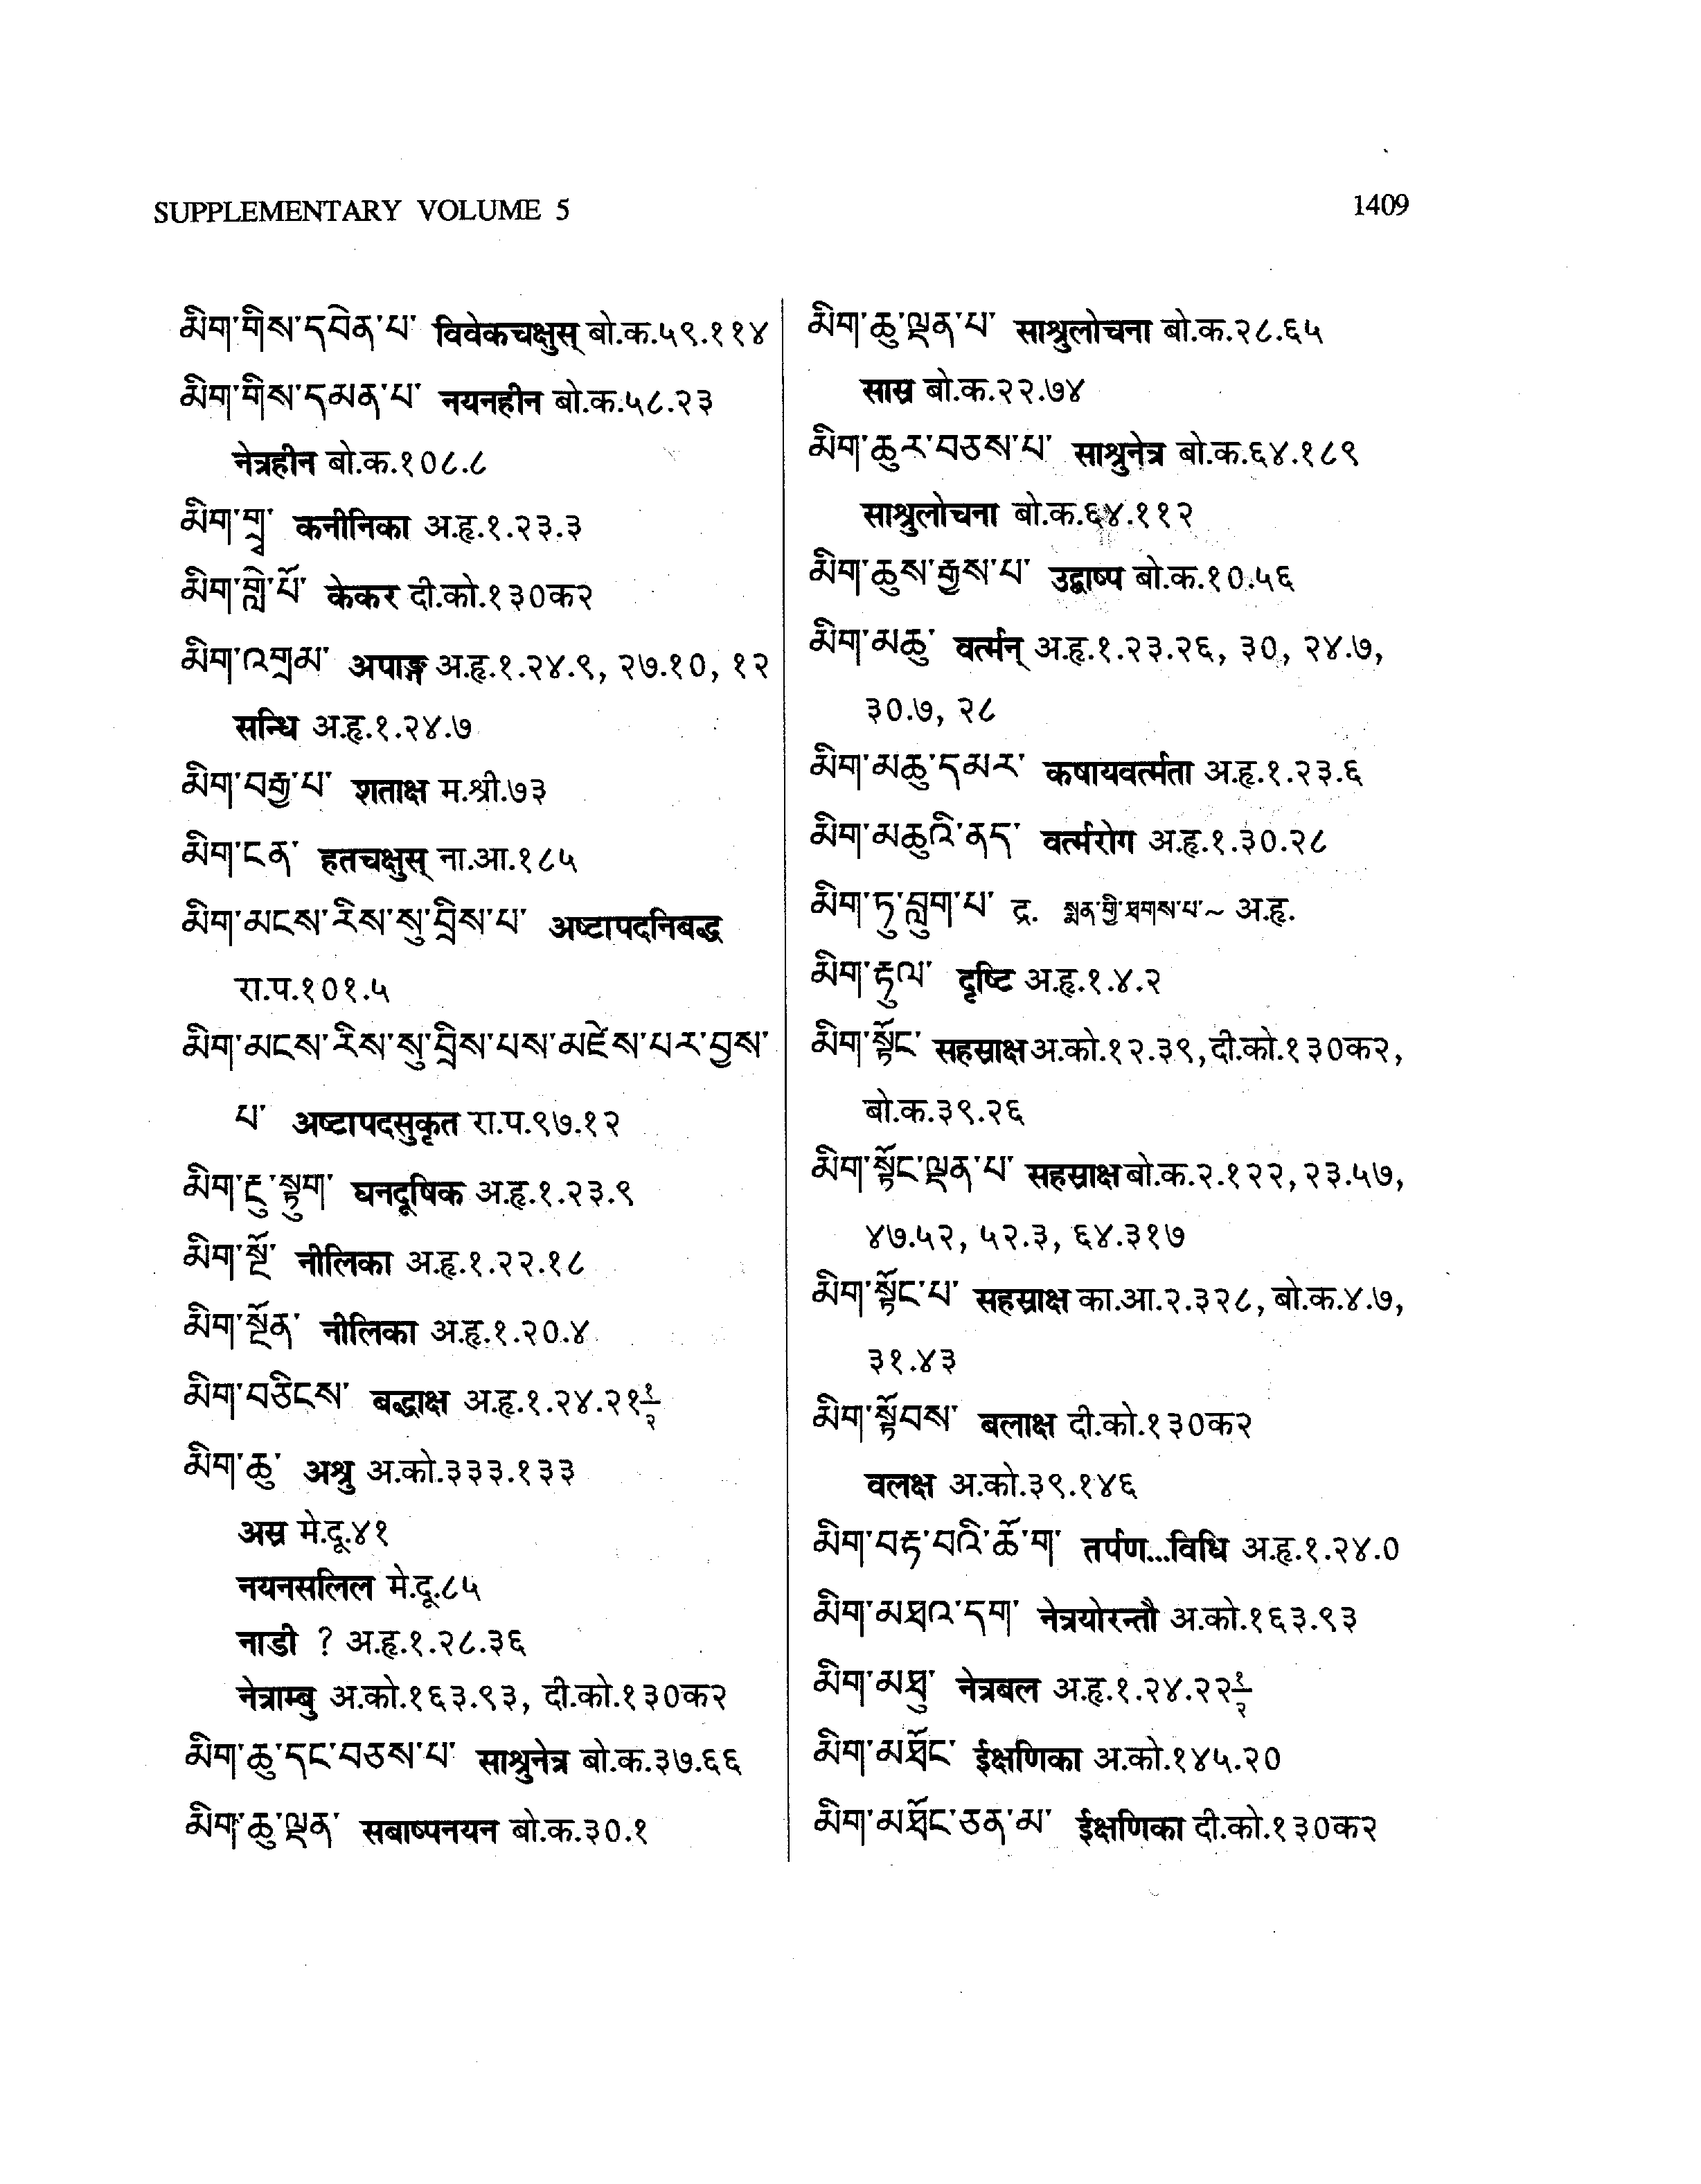 SUPPLEMENTARY VOLUME 5
1409
མིག་གིས་དབེན་པ་ विवेकचक्षुस् बो.क.५९.११४
མིག་གིས་དམན་པ་ नयनहीन बो.क.५८.२३
नेत्रहीन बो.क.१०८.८
མིག་གྲྭ་ कनीनिका अ.हृ.१.२३.३
མིག་གླེ་པོ་ केकर दी.को.१३०क२
མིག་འགྲམ་ अपाङ्ग अ.हृ.१.२४.९, २७.१०, १२
सन्धि अ.हृ.१.२४.७
མིག་བརྒྱ་པ་ शताक्ष म.श्री.७३
མིག་ངན་ हतचक्षुस् ना.आ.१८५
མིག་མངས་རིས་སུ་བྲིས་པ་ अष्टापदनिबद्ध
रा.प.१०१.५
མིག་མངས་རིས་སུ་བྲིས་པས་མཛེས་པར་བྱས་
པ་ अष्टापदसुकृत रा.प.९७.१२
མིག་རྔུ་སྟུག་ घनदूषिक अ.हृ.१.२३.९
མིག་སྔོ་ नीलिका अ.हृ.१.२२.१८
མིག་སྔོན་ नीलिका अ.हृ.१.२०.४
མིག་བཅིངས་ बद्धाक्ष अ.हृ.१.२४.२११/२
མིག་ཆུ་ अश्रु अ.को.३३३.१३३
अस्र मे.दू.४१
नयनसलिल मे.दू.८५
नाडी ? अ.हृ.१.२८.३६
नेत्राम्बु अ.को.१६३.९३, दी.को.१३०क२
མིག་ཆུ་དང་བཅས་པ་ साश्रुनेत्र बो.क.३७.६६
མིག་ཆུ་ལྡན་ सबाष्पनयन बो.क.३०.१
མིག་ཆུ་ལྡན་པ་ साश्रुलोचना बो.क.२८.६५
सास्र बो.क.२२.७४
མིག་ཆུར་བཅས་པ་ साश्रुनेत्र बो.क.६४.१८९
साश्रुलोचना बो.क.६४.११२
མིག་ཆུས་རྒྱས་པ་ उद्बाष्प बो.क.१०.५६
མིག་མཆུ་ वर्त्मन् अ.हृ.१.२३.२६, ३०, २४.७,
३०.७, २८
མིག་མཆུ་དམར་ कषायवर्त्मता अ.हृ.१.२३.६
མིག་མཆུའི་ནད་ वर्त्मरोग अ.हृ.१.३०.२८
མིག་ཏུ་བླུག་པ་ द्र. སྨན་གྱི་ཐགས་པ་~ अ.हृ.
མིག་རྟུལ་ दृष्टि अ.हृ.१.४.२
མིག་སྟོང་ सहस्राक्ष अ.को.१२.३९, दी.को.१३०क२,
बो.क.३९.२६
མིག་སྟོང་ལྡན་པ་ सहस्राक्ष बो.क.२.१२२, २३.५७,
४७.५२, ५२.३, ६४.३१७
མིག་སྟོང་པ་ सहस्राक्ष का.आ.२.३२८, बो.क.४.७,
३१.४३
མིག་སྟོབས་ बलाक्ष दी.को.१३०क२
वलक्ष अ.को.३९.१४६
མིག་བརྟ་བའི་ཆོ་ག་ तर्पण...विधि अ.हृ.१.२४.०
མིག་མཐའ་དག་ नेत्रयोरन्तौ अ.को.१६३.९३
མིག་མཐུ་ नेत्रबल अ.हृ.१.२४.२२१/२
མིག་མཐོང་ ईक्षणिका अ.को.१४५.२०
མིག་མཐོང་ཅན་མ་ ईक्षणिका दी.को.१३०क२